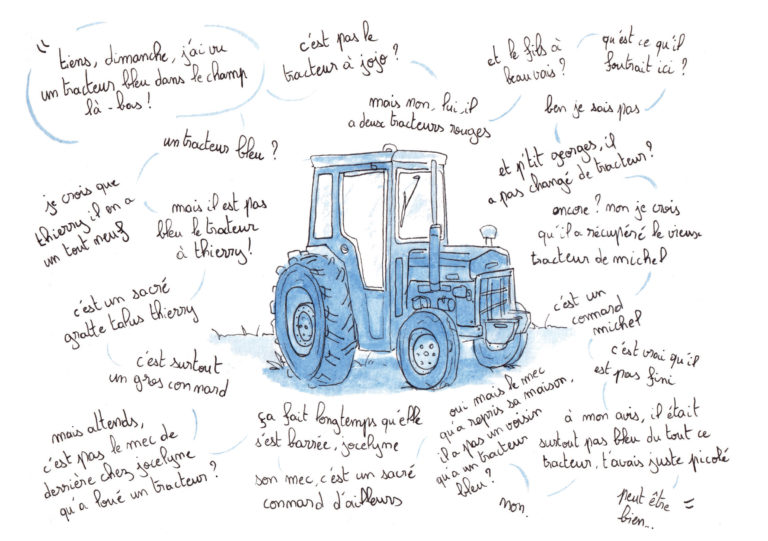 " tiens, dimanche, j'ai vu
un tracteur bleu dans le champ
là-bas !
un tracteur bleu ?
je crois que
thierry il en a
un tout neuf
mais il est pas
bleu le tracteur
à thierry !
c'est un sacré
gratte talus thierry
c'est surtout
un gros connard
mais attends,
c'est pas le mec de
derrière chez jocelyne
qu'a loué un tracteur ?
ça fait longtemps qu'elle
s'est barrée, jocelyne
son mec, c'est un sacré
connard d'ailleurs
oui mais le mec
qu'a repris sa maison,
il a pas un voisin
qu'a un tracteur
bleu ?
non.
c'est pas le
tracteur à jojo ?
mais non, lui il
a deux tracteurs rouges
et le fils à
beauvais ?
qu'est ce qu'il
foutrait ici ?
ben je sais pas
et p'tit georges, il
a pas changé de tracteur ?
encore ? non je crois
qu'il a récupéré le vieux
tracteur de michel
c'est un
connard
michel
c'est vrai qu'il
est pas fini
à mon avis, il était
surtout pas bleu du tout ce
tracteur, t'avais juste picolé
peut être
bien... "